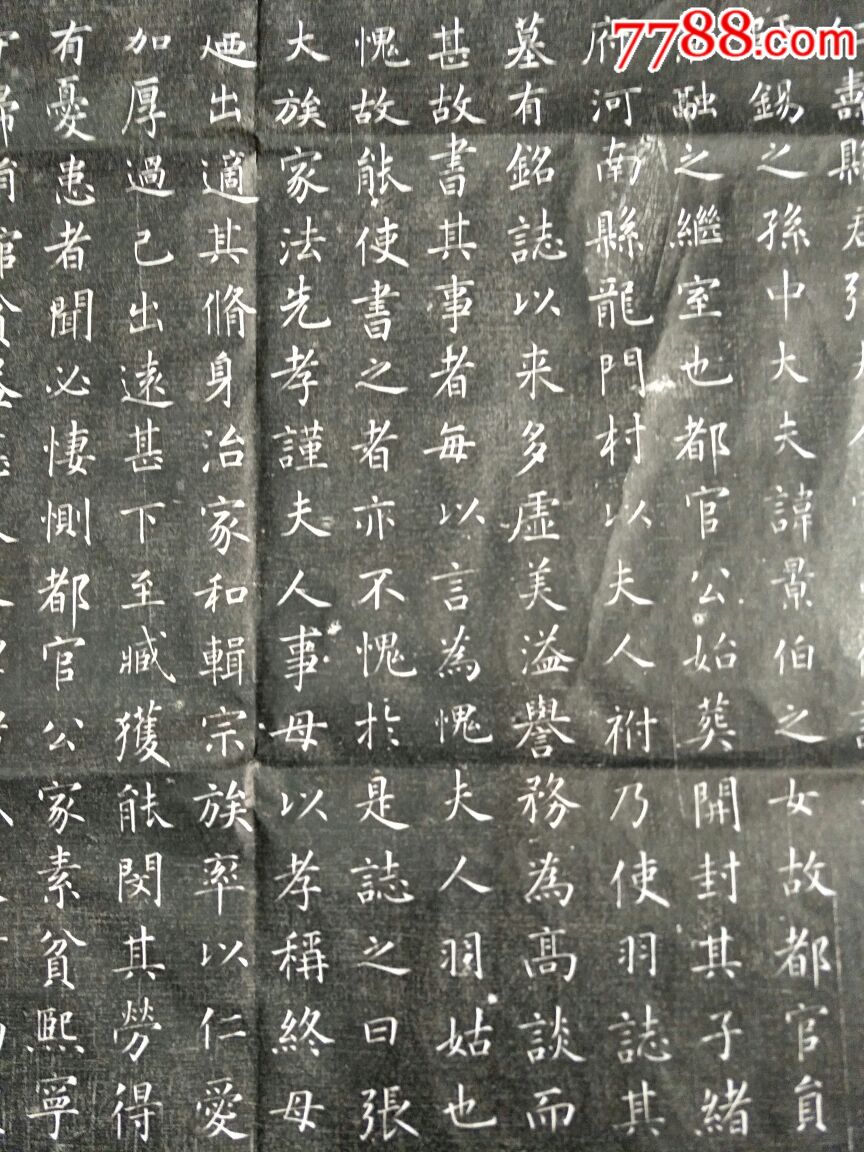 7788.com
壽縣君張
錫之孫中大夫諱景伯之女故都官員
融之繼室也都官公始葬開封其子緒
府河南縣龍門村以夫人祔乃使羽誌其
墓有銘誌以来多虛美溢譽務為高談而
甚故書其事者每以言為愧夫人羽姑也
愧故能使書之者亦不愧於是誌之曰張
大族家法先孝謹夫人事母以孝稱終母
出適其脩身治家和輯宗族率以仁愛
加厚過己出遠甚下至臧獲能閔其勞得
有憂患者聞必悽惻都官公家素貧熙寧